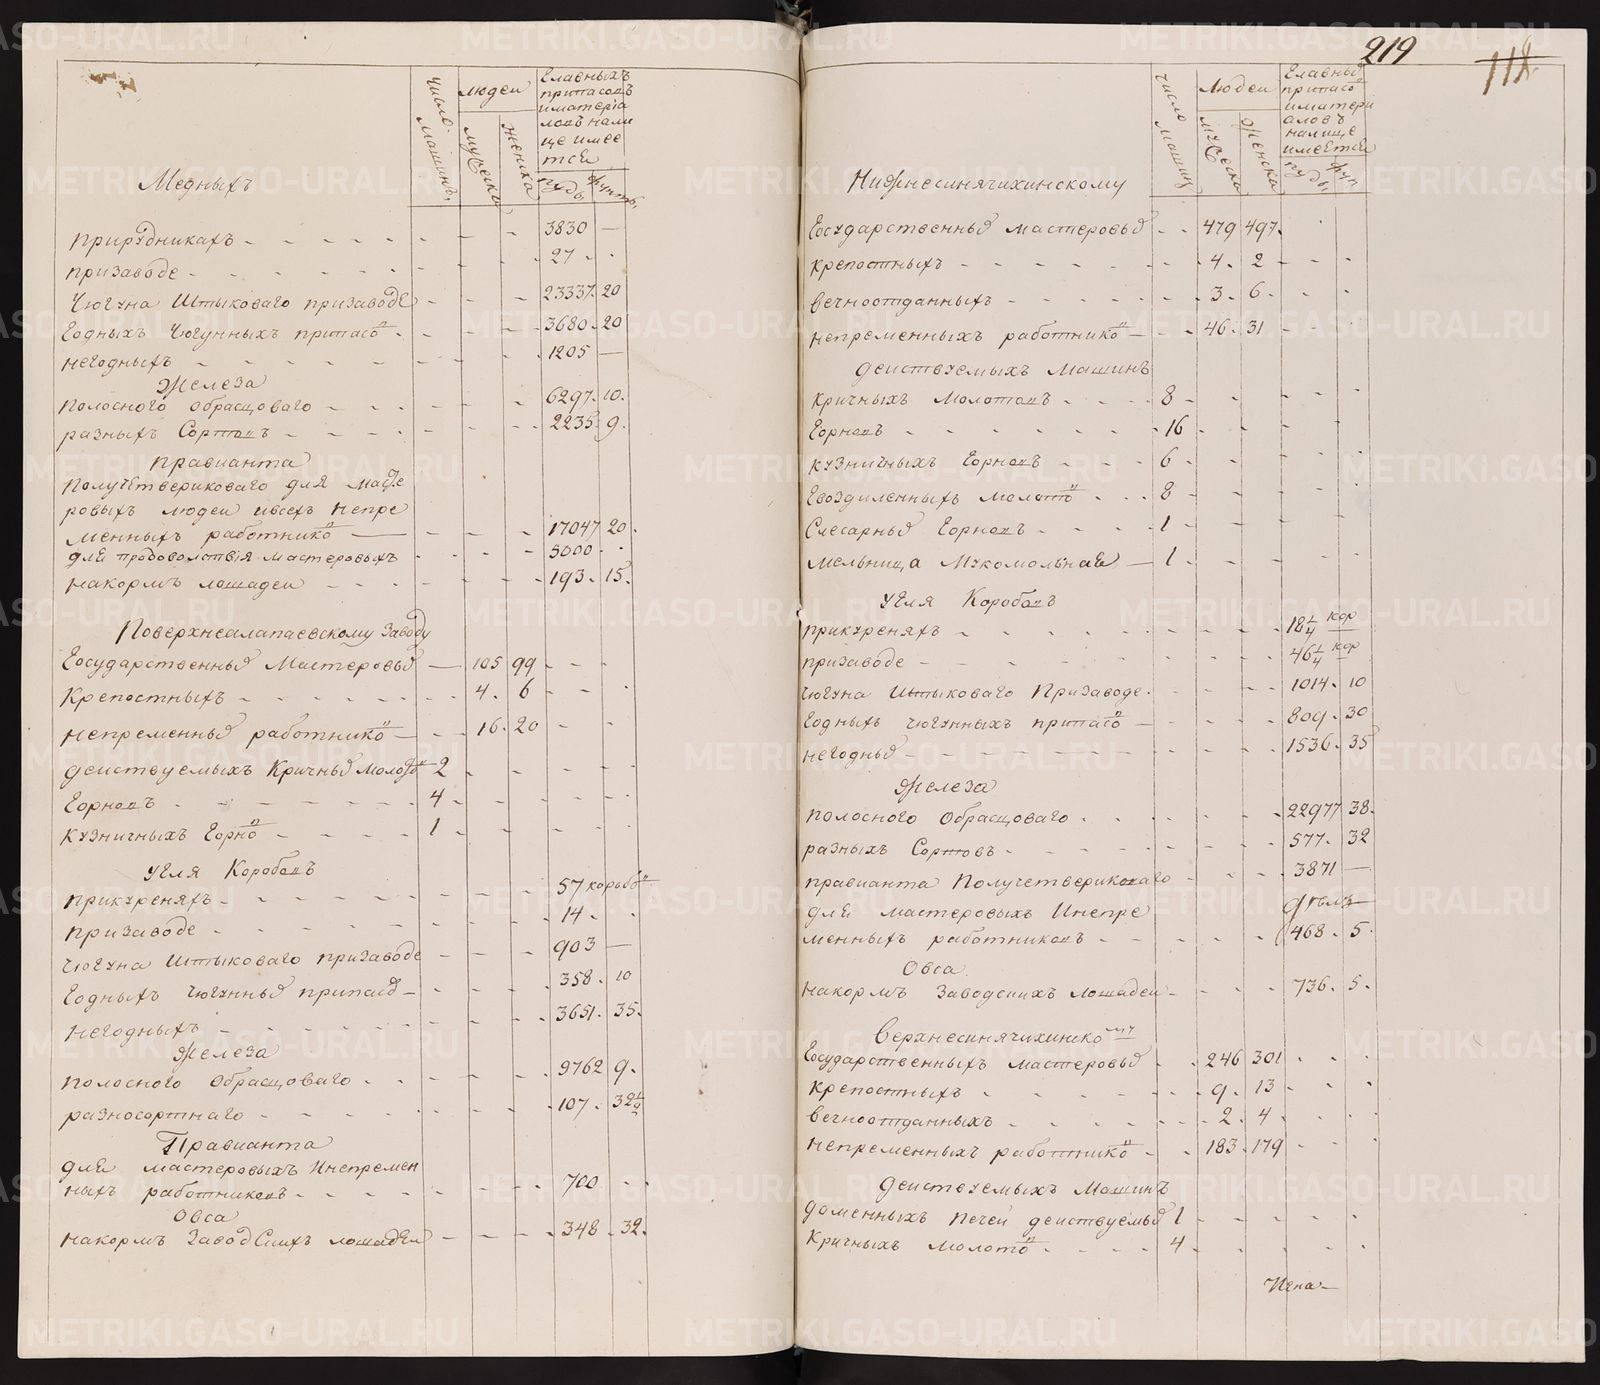 Число Машинъ,
Людеи
мужеска
женска
Главныхъ
припасовъ
иматеріа
ловъ нали
це имее
тсе
пуды
фунты,
Медныхъ
прирудникахъ - - - - - - - - 3830 —
призаводе - - - - - - - - 27 - -
Чюгуна Штыковаго призаводе - - - 23337. 20
Годныхъ Чюгунныхъ припасовъ - - - 3680. 20
негодныхъ - - - - - - - 1205 —
Железа
полосного образцоваго - - - - - 6297. 10.
разныхъ Сортовъ - - - - - - 2235. 9.
правианта
получетвериковаго для масте
ровыхъ людеи ивсехъ непре
менныхъ работниковъ — - - - 17047 20.
для продоволствія мастеровыхъ - - - 5000 - -
накормъ лошадеи - - - - - - 193. 15.
Поверхнеалапаевскому Заводу
Государственные Мастеровые — 105 99 - - -
Крепостныхъ - - - - - - 4. 6 - - -
непременные работниковъ — - - 16. 20 - -
деиствуемыхъ Кричные молотовъ 2 - - - - -
Горновъ - - - - - - 4 - - - - -
кузничныхъ Горновъ - - - - 1 - - - - -
Угля Коробовъ
прикуреняхъ - - - - - - 57 коробовъ
призаводе - - - - - - 14 - -
Чюгуна Штыковаго призаводе - - - 903 —
Годныхъ чюгунные припасовъ - - - 358. 10
негодныхъ - - - - - - 3651. 35.
Железа
полосного образцоваго - - - - 9762 9.
разносортнаго - - - - - - 107. 32 1/2
Правианта
для мастеровыхъ Инепремен
ныхъ работниковъ - - - - - - 700 - -
Овса
накормъ Заводскихъ лошадеи - - - 348. 32.
219
118
Число Машинъ
Людеи
мужеска
женска
Главные
припасовъ
иматери
аловъ
налице
имеетсе
пуды,
фун
Нижнесинячихинскому
Государственные мастеровые - - 479 497. -
крепостныхъ - - - - - - 4. 2 - - -
вечноотданныхъ - - - - - - 3. 6. - - -
непременныхъ работниковъ — - - 46. 31 - - -
деиствуемыхъ Машинъ
кричныхъ Молотовъ - - - 8 - - - - -
Горновъ - - - - - - 16 - - - - -
кузничныхъ Горновъ - - - 6 - - - - -
Гвоздиленныхъ молотовъ - - - 8 - - - - -
Слесарные Горновъ - - - 1 - - - - -
мельница Мукомольнае — 1 - - - - -
Угля Коробовъ
прикуреняхъ - - - - - - 18 1/4 кор
призаводе - - - - - - 46 1/4 кор
чюгуна Штыковаго Призаводе. - - - 1014. 10
Годныхъ чюгунныхъ припасовъ — - - - 809. 30
негодные - - - - - - 1536. 35
Железа
полосного образцоваго - - - - - 22977 38.
разныхъ Сортовъ - - - - - - 577. 32
правианта Получетвериковаго - - - 3871 —
для мастеровыхъ Инепре
менныхъ работниковъ - - - - - 468. 5.
Овса
накормъ Заводскихъ лошадеи - - - - 736. 5.
Верхнесинячихинскому
Государственныхъ мастеровые - - 246 301 - - -
крепостныхъ - - - - - - 9. 13 - - -
вечноотданныхъ - - - - - - 2. 4. - - -
непременныхъ работниковъ - - 183. 179 - - -
деиствуемыхъ Машинъ
доменныхъ печеи деиствуемые 1 - - - - -
Кричныхъ молотовъ - - - 4 - - - - -